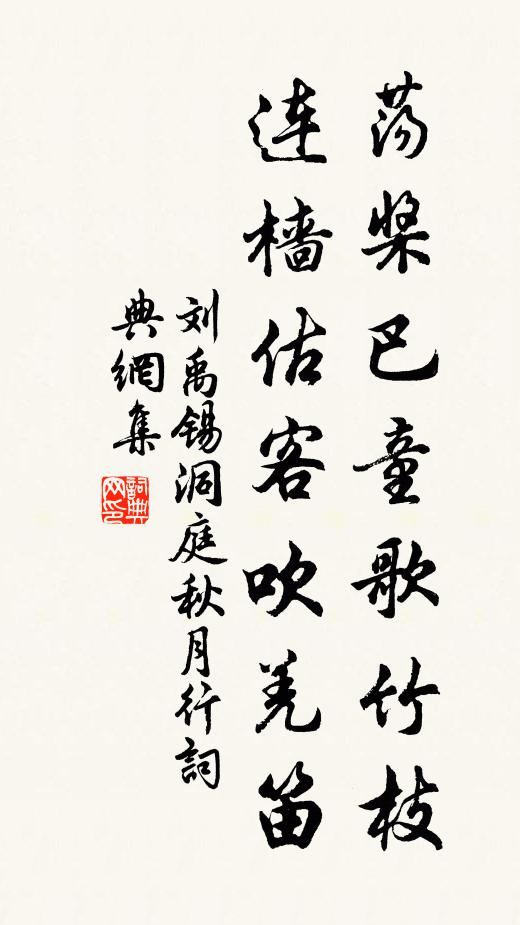 荡桨巴童歌竹枝
连樯估客吹羌笛
刘禹锡洞庭秋月行詞
典網集
詞典
网印